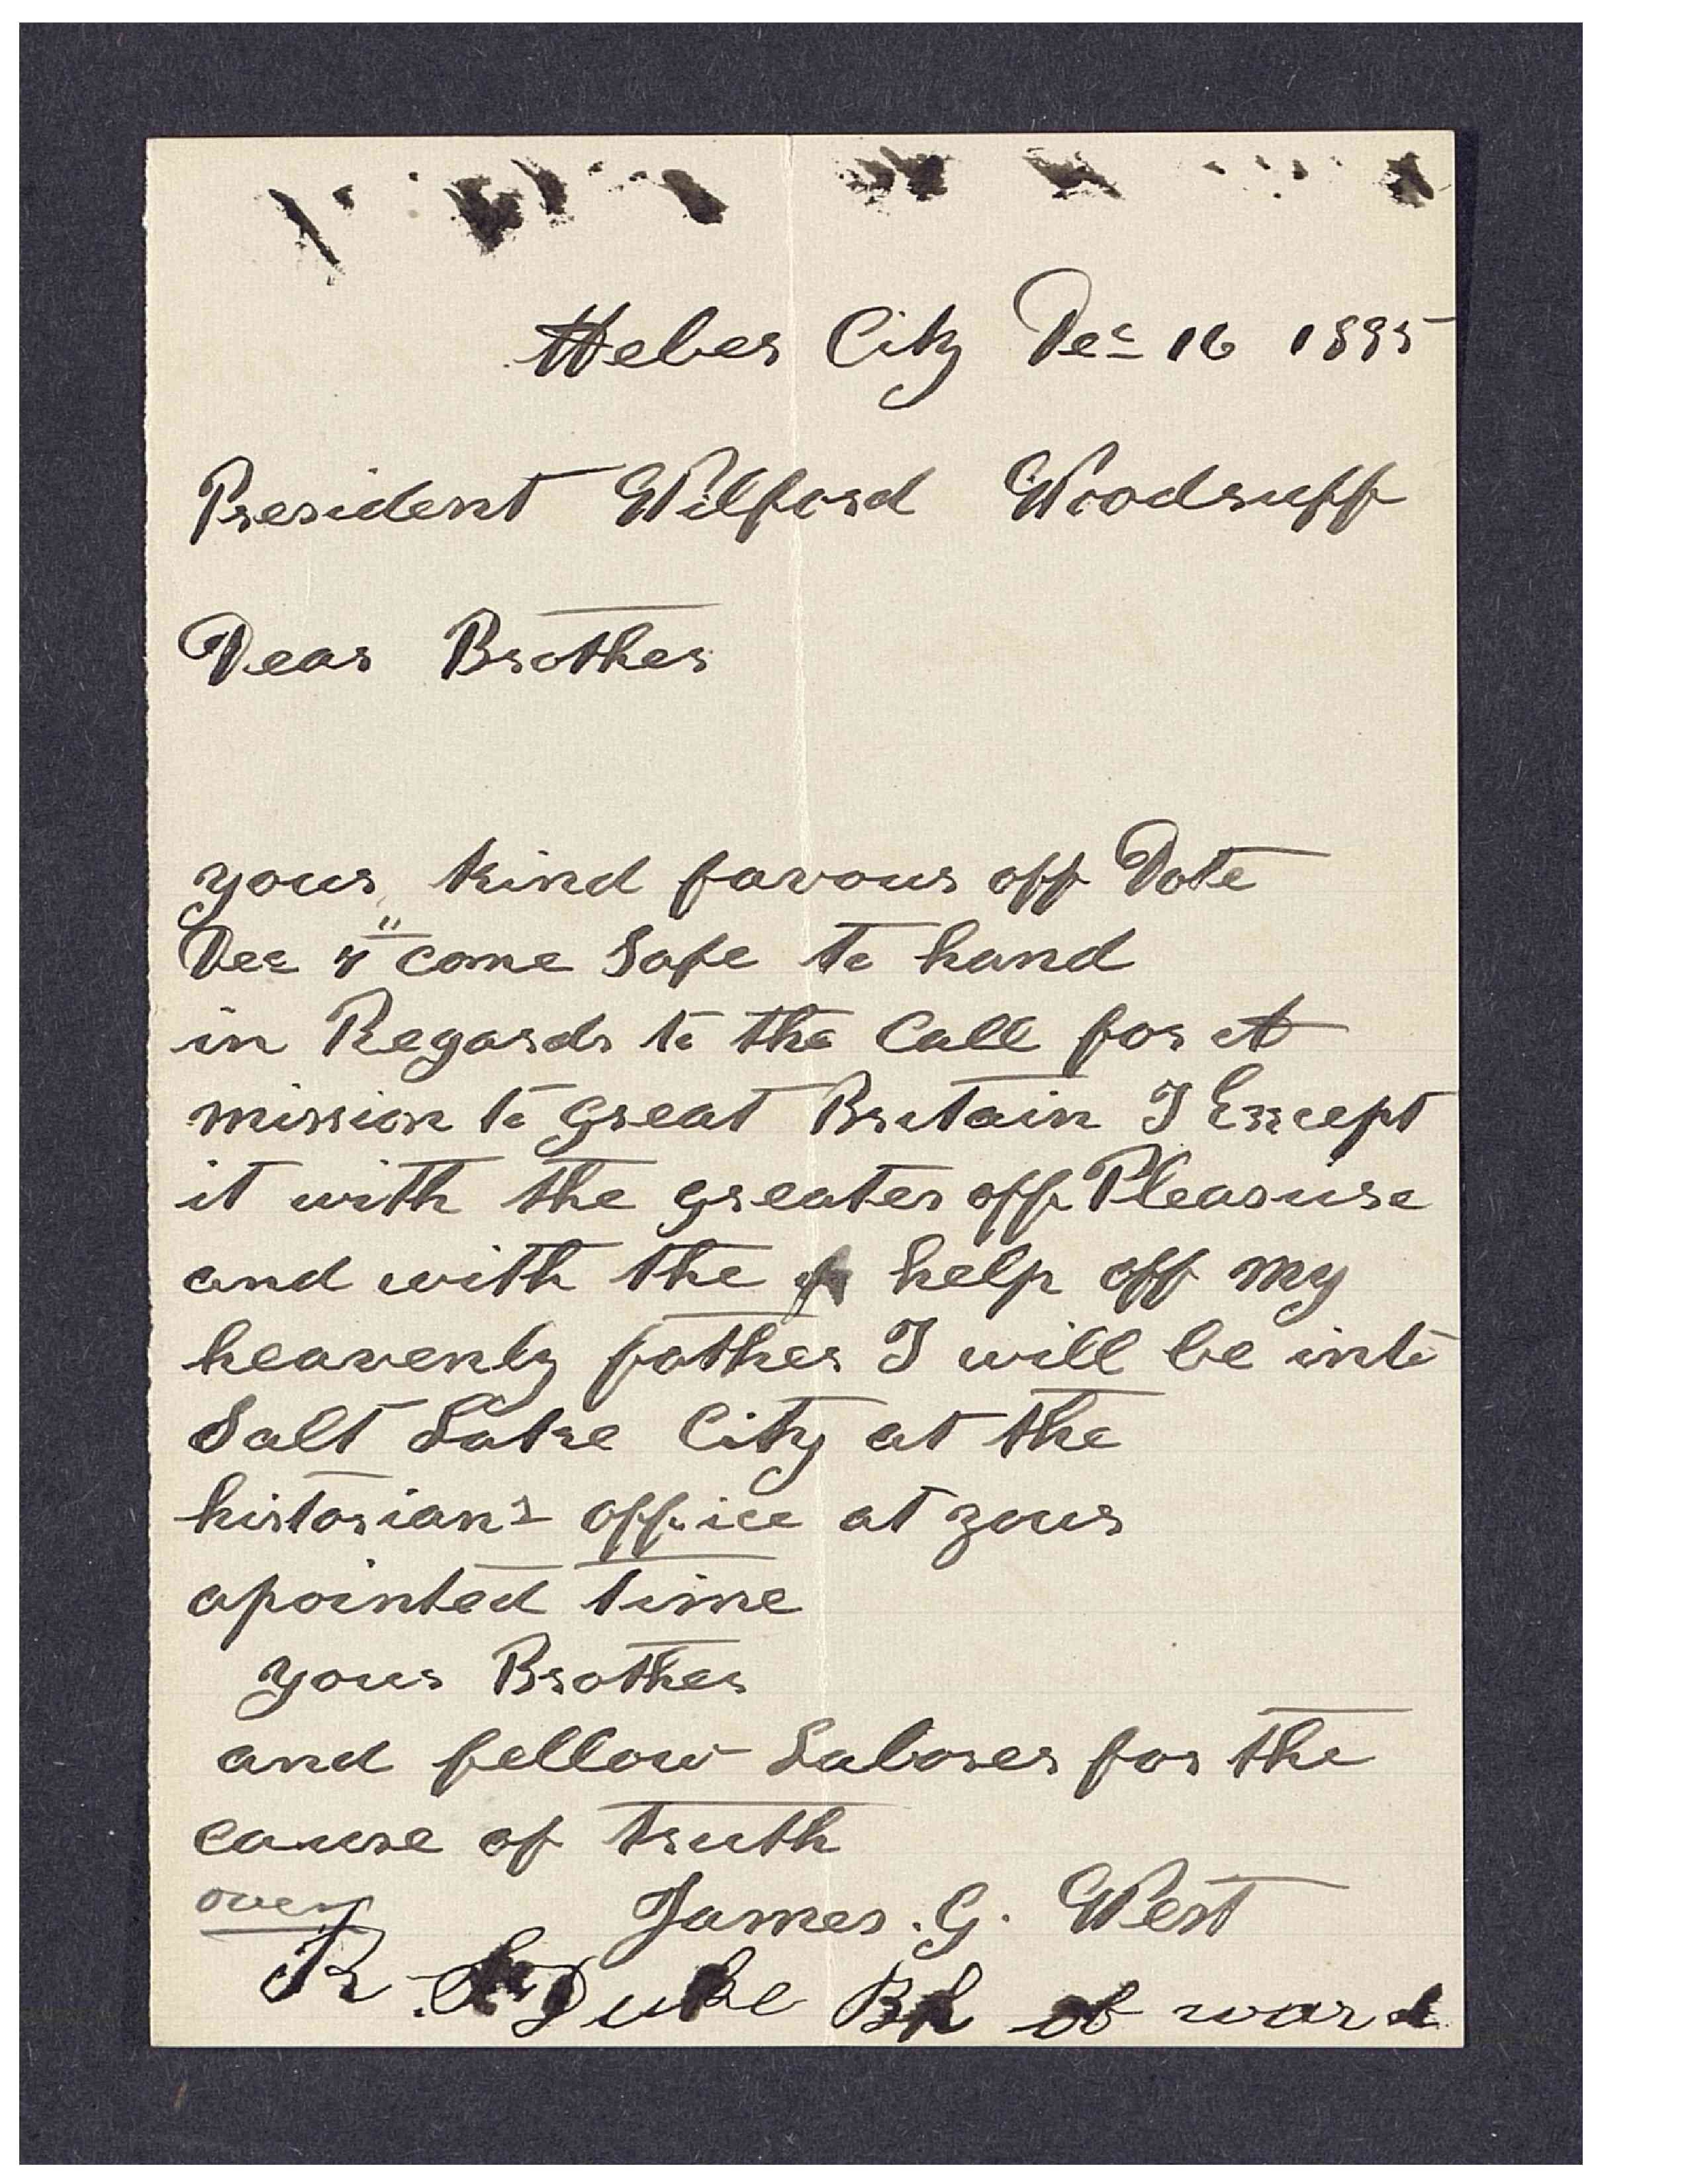 Heber City Dec 16 1895
President Wilford Woodruff
Dear Brother
your kind favour off Date
Dec " come Safe to hand
in Regards to the Call for A
mission to great Britain I Except
it with the greater off Pleasure
and with the help off my
heavenly father I will be into
Salt Lake City at the
historians office at your
apointed time
your Brother
and fellow Laborer for the
cause of truth
over James. G. West
R Duke Bh of ward